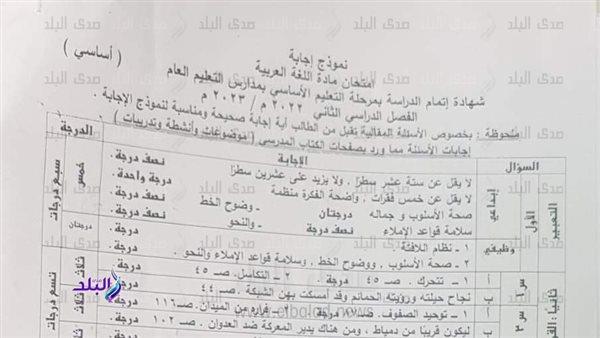 نموذج إجابة
امتحان مادة اللغة العربية
( أساسي )
شهادة إتمام الدراسة بمرحلة التعليم الأساسي بمدارس التعليم العام
الفصل الدراسي الثاني ٢٠٢٢ م / ٢٠٢٣ م
ملحوظة : بخصوص الأسئلة المقالية تقبل من الطالب أية إجابة صحيحة ومناسبة لنموذج الإجابة .
إجابات الأسئلة مما ورد بصفحات الكتاب المدرسي ( موضوعات وأنشطة وتدريبات )
السؤال الإجابة الدرجة
أولاً : التعبير
إبداعي
لا يقل عن ستة عشر سطرًا , ولا يزيد على عشرين سطرًا نصف درجة.
لا يقل عن خمس فقرات , واضحة الفكرة منظمة درجة واحدة.
صحة الأسلوب و جماله درجتان – وضوح الخط نصف درجة.
سلامة قواعد الإملاء درجة – والنحو درجة.
خمس
سبع درجات
وظيفي
١ – نظام اللافتة.
٢ – صحة الأسلوب , ووضوح الخط , وسلامة قواعد الإملاء والنحو.
درجتان
ثانيًا :
س١
أ ١ – تتحرك . صـ ٤٥ درجة . ٢ – التكاسل . صـ ٤٥ درجة.
ب نجاح حيلته ورؤيته الحمائم وقد أمسكت بهن الشبكة . صـ ٤٤
ثلاث
تسع درجات
س٢
أ ١ – توحيد الصفوف. درجة ٢ – فراره من الميدان . صـ ١١٦
ب ليكون قريبًا من دمياط , ومن هناك يدير المعركة ضد العدوان . صـ ١٠٢
ثلاث
صدى البلد
صدى البلد
صدى البلد
صدى البلد
البلد
elbalad.news